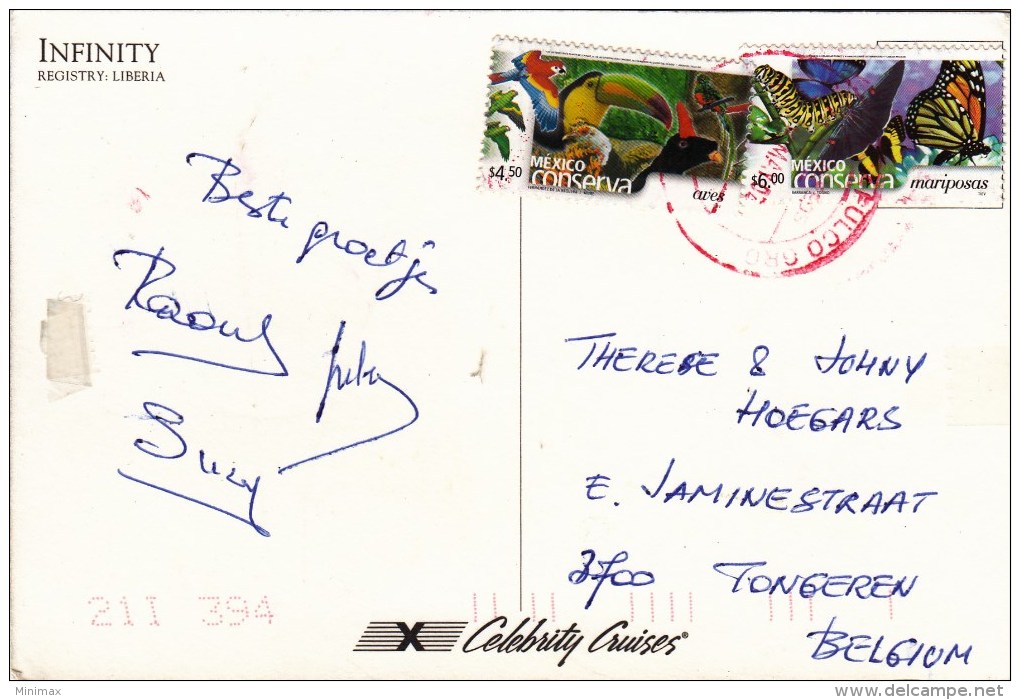 INFINITY
REGISTRY: LIBERIA
MÉXICO
$4.50 conserva
aves
MÉXICO
$6.00 conserva
mariposas
PULCO GRO
Beste groetjes
Raoul
Suzy
THERESE & JOHNY
HOEGARS
E. JAMINESTRAAT
3700 TONGEREN
BELGIUM
211 394
X Celebrity Cruises®
Minimax
delcampe.net